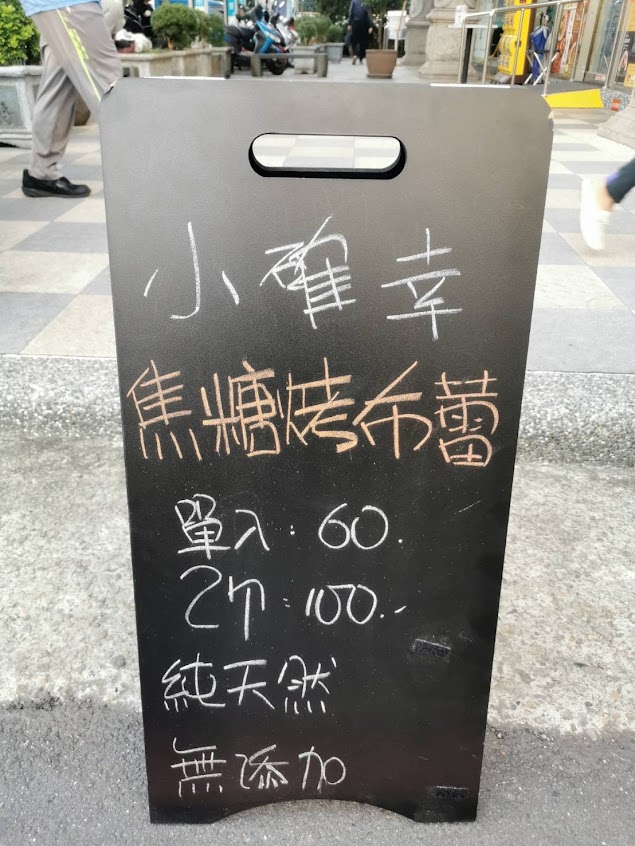 小確幸
焦糖烤布蕾
單入：60.
2入：100.-
純天然
無添加